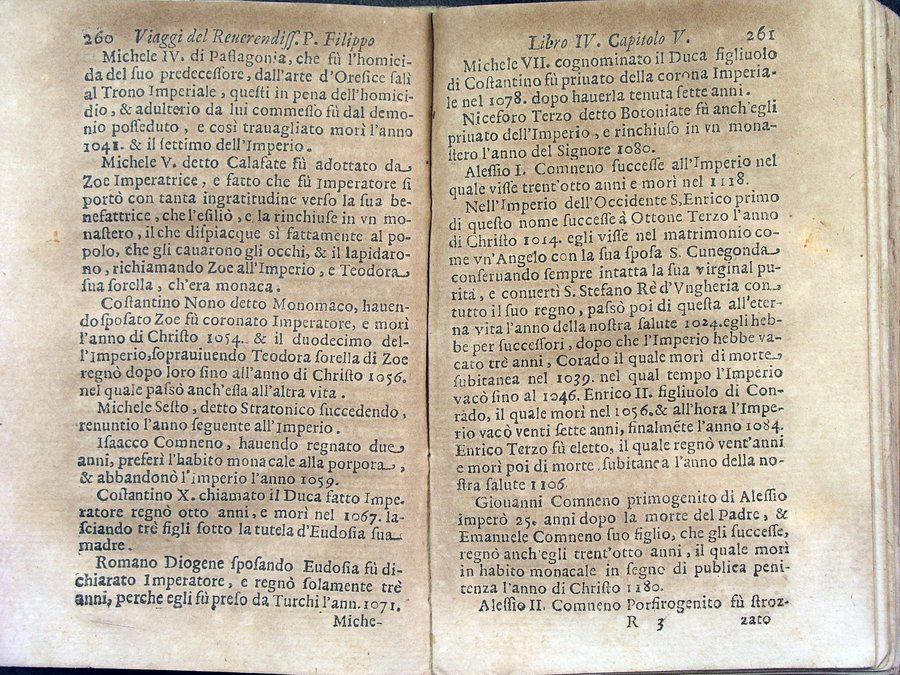 260 Viaggi del Reuerendiſſ. P. Filippo
Michele IV. di Paflagonia, che fù l'homici-
da del ſuo predeceſſore, dall'arte d'Orefice ſalì
al Trono Imperiale, queſti in pena dell'homici-
dio, & adulterio da lui commeſſo fù dal demo-
nio poſſeduto, e così trauagliato morì l'anno
1041. & il ſettimo dell'Imperio.
Michele V. detto Calafate fù adottato da
Zoe Imperatrice, e fatto che fù Imperatore ſi
portò con tanta ingratitudine verſo la ſua be-
nefattrice, che l'eſiliò, e la rinchiuſe in vn mo-
naſtero, il che diſpiacque sì fattamente al po-
polo, che gli cauarono gli occhi, & il lapidaro-
no, richiamando Zoe all'Imperio, e Teodora
ſua ſorella, ch'era monaca.
Coſtantino Nono detto Monomaco, hauen-
do ſpoſato Zoe fù coronato Imperatore, e morì
l'anno di Chriſto 1054. & il duodecimo del-
l'Imperio, ſoprauiuendo Teodora ſorella di Zoe
regnò dopo loro ſino all'anno di Chriſto 1056.
nel quale paſsò anch'eſſa all'altra vita.
Michele Seſto, detto Stratonico ſuccedendo,
renuntio l'anno ſeguente all'Imperio.
Iſaacco Comneno, hauendo regnato due
anni, preferì l'habito monacale alla porpora,
& abbandonò l'imperio l'anno 1059.
Coſtantino X. chiamato il Duca fatto Impe-
ratore regnò otto anni, e morì nel 1067. la-
ſciando trè figli ſotto la tutela d'Eudoſia ſua
madre.
Romano Diogene ſpoſando Eudoſia fù di-
chiarato Imperatore, e regnò ſolamente trè
anni, perche egli fù preſo da Turchi l'ann. 1071.
Miche-
Libro IV. Capitolo V. 261
Michele VII. cognominato il Duca figliuolo
di Coſtantino fù priuato della corona Imperia-
le nel 1078. dopo hauerla tenuta ſette anni.
Niceforo Terzo detto Botoniate fù anch'egli
priuato dell'Imperio, e rinchiuſo in vn mona-
ſtero l'anno del Signore 1080.
Aleſſio I. Comneno ſucceſſe all'Imperio nel
quale viſſe trent'otto anni e morì nel 1118.
Nell'Imperio dell'Occidente S. Enrico primo
di queſto nome ſucceſſe à Ottone Terzo l'anno
di Chriſto 1014. egli viſſe nel matrimonio co-
me vn'Angelo con la ſua ſpoſa S. Cunegonda
conſeruando ſempre intatta la ſua virginal pu-
rità, e conuertì S. Stefano Rè d'Vngheria con
tutto il ſuo regno, paſsò poi di queſta all'eter-
na vita l'anno della noſtra ſalute 1024. egli heb-
be per ſucceſſori, dopo che l'Imperio hebbe va-
cato trè anni, Corado il quale morì di morte
ſubitanea nel 1039. nel qual tempo l'Imperio
vacò ſino al 1046. Enrico II. figliuolo di Con-
rado, il quale morì nel 1056. & all'hora l'Impe-
rio vacò venti ſette anni, finalmẽte l'anno 1084.
Enrico Terzo fù eletto, il quale regnò vent'anni
e morì poi di morte ſubitanea l'anno della no-
ſtra ſalute 1106.
Giouanni Comneno primogenito di Aleſſio
imperò 25. anni dopo la morte del Padre, &
Emanuele Comneno ſuo figlio, che gli ſucceſſe,
regnò anch'egli trent'otto anni, il quale morì
in habito monacale in ſegno di publica peni-
tenza l'anno di Chriſto 1180.
Aleſſio II. Comneno Porfirogenito fù ſtroz-
R 3 zato